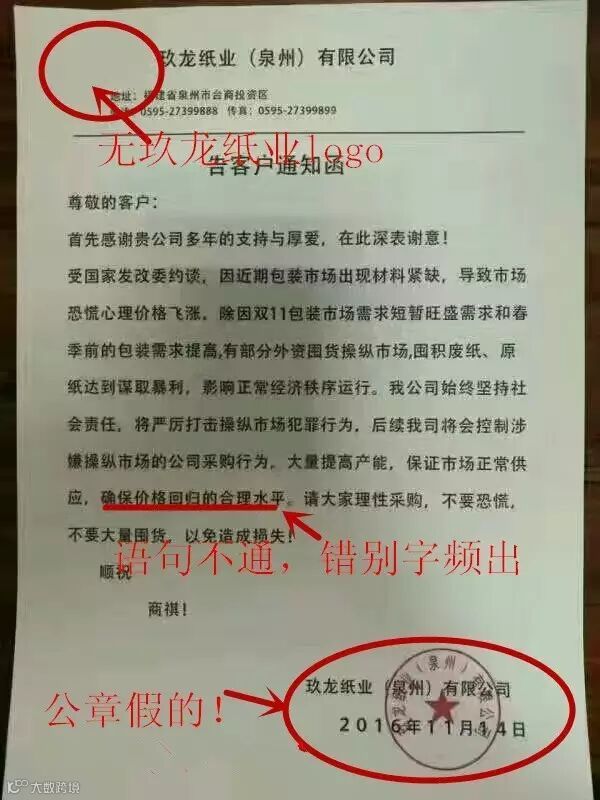 玖龙纸业（泉州）有限公司
地址：福建省泉州市台商投资区
0595-27399888 传真：0595-27399899
无玖龙纸业logo
告客户通知函
尊敬的客户：
首先感谢贵公司多年的支持与厚爱，在此深表谢意！
受国家发改委约谈，因近期包装市场出现材料紧缺，导致市场
恐慌心理价格飞涨，除因双11包装市场需求短暂旺盛需求和春
季前的包装需求提高,有部分外资囤货操纵市场,囤积废纸、原
纸达到谋取暴利，影响正常经济秩序运行。我公司始终坚持社
会责任，将严厉打击操纵市场犯罪行为，后续我司将会控制涉
嫌操纵市场的公司采购行为，大量提高产能，保证市场正常供
应，确保价格回归的合理水平。请大家理性采购，不要恐慌，
不要大量囤货，以免造成损失！
语句不通，错别字频出
顺祝
商祺！
玖龙纸业（泉州）有限公司
2016年11月14日
公章假的！
玖龙纸业（泉州）有限公司
大数跨境